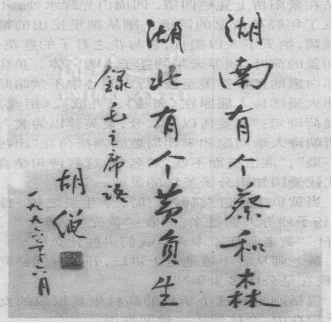 湖南有个蔡和森
湖北有个黄负生
録毛主席语
胡绳
一九九六年六月